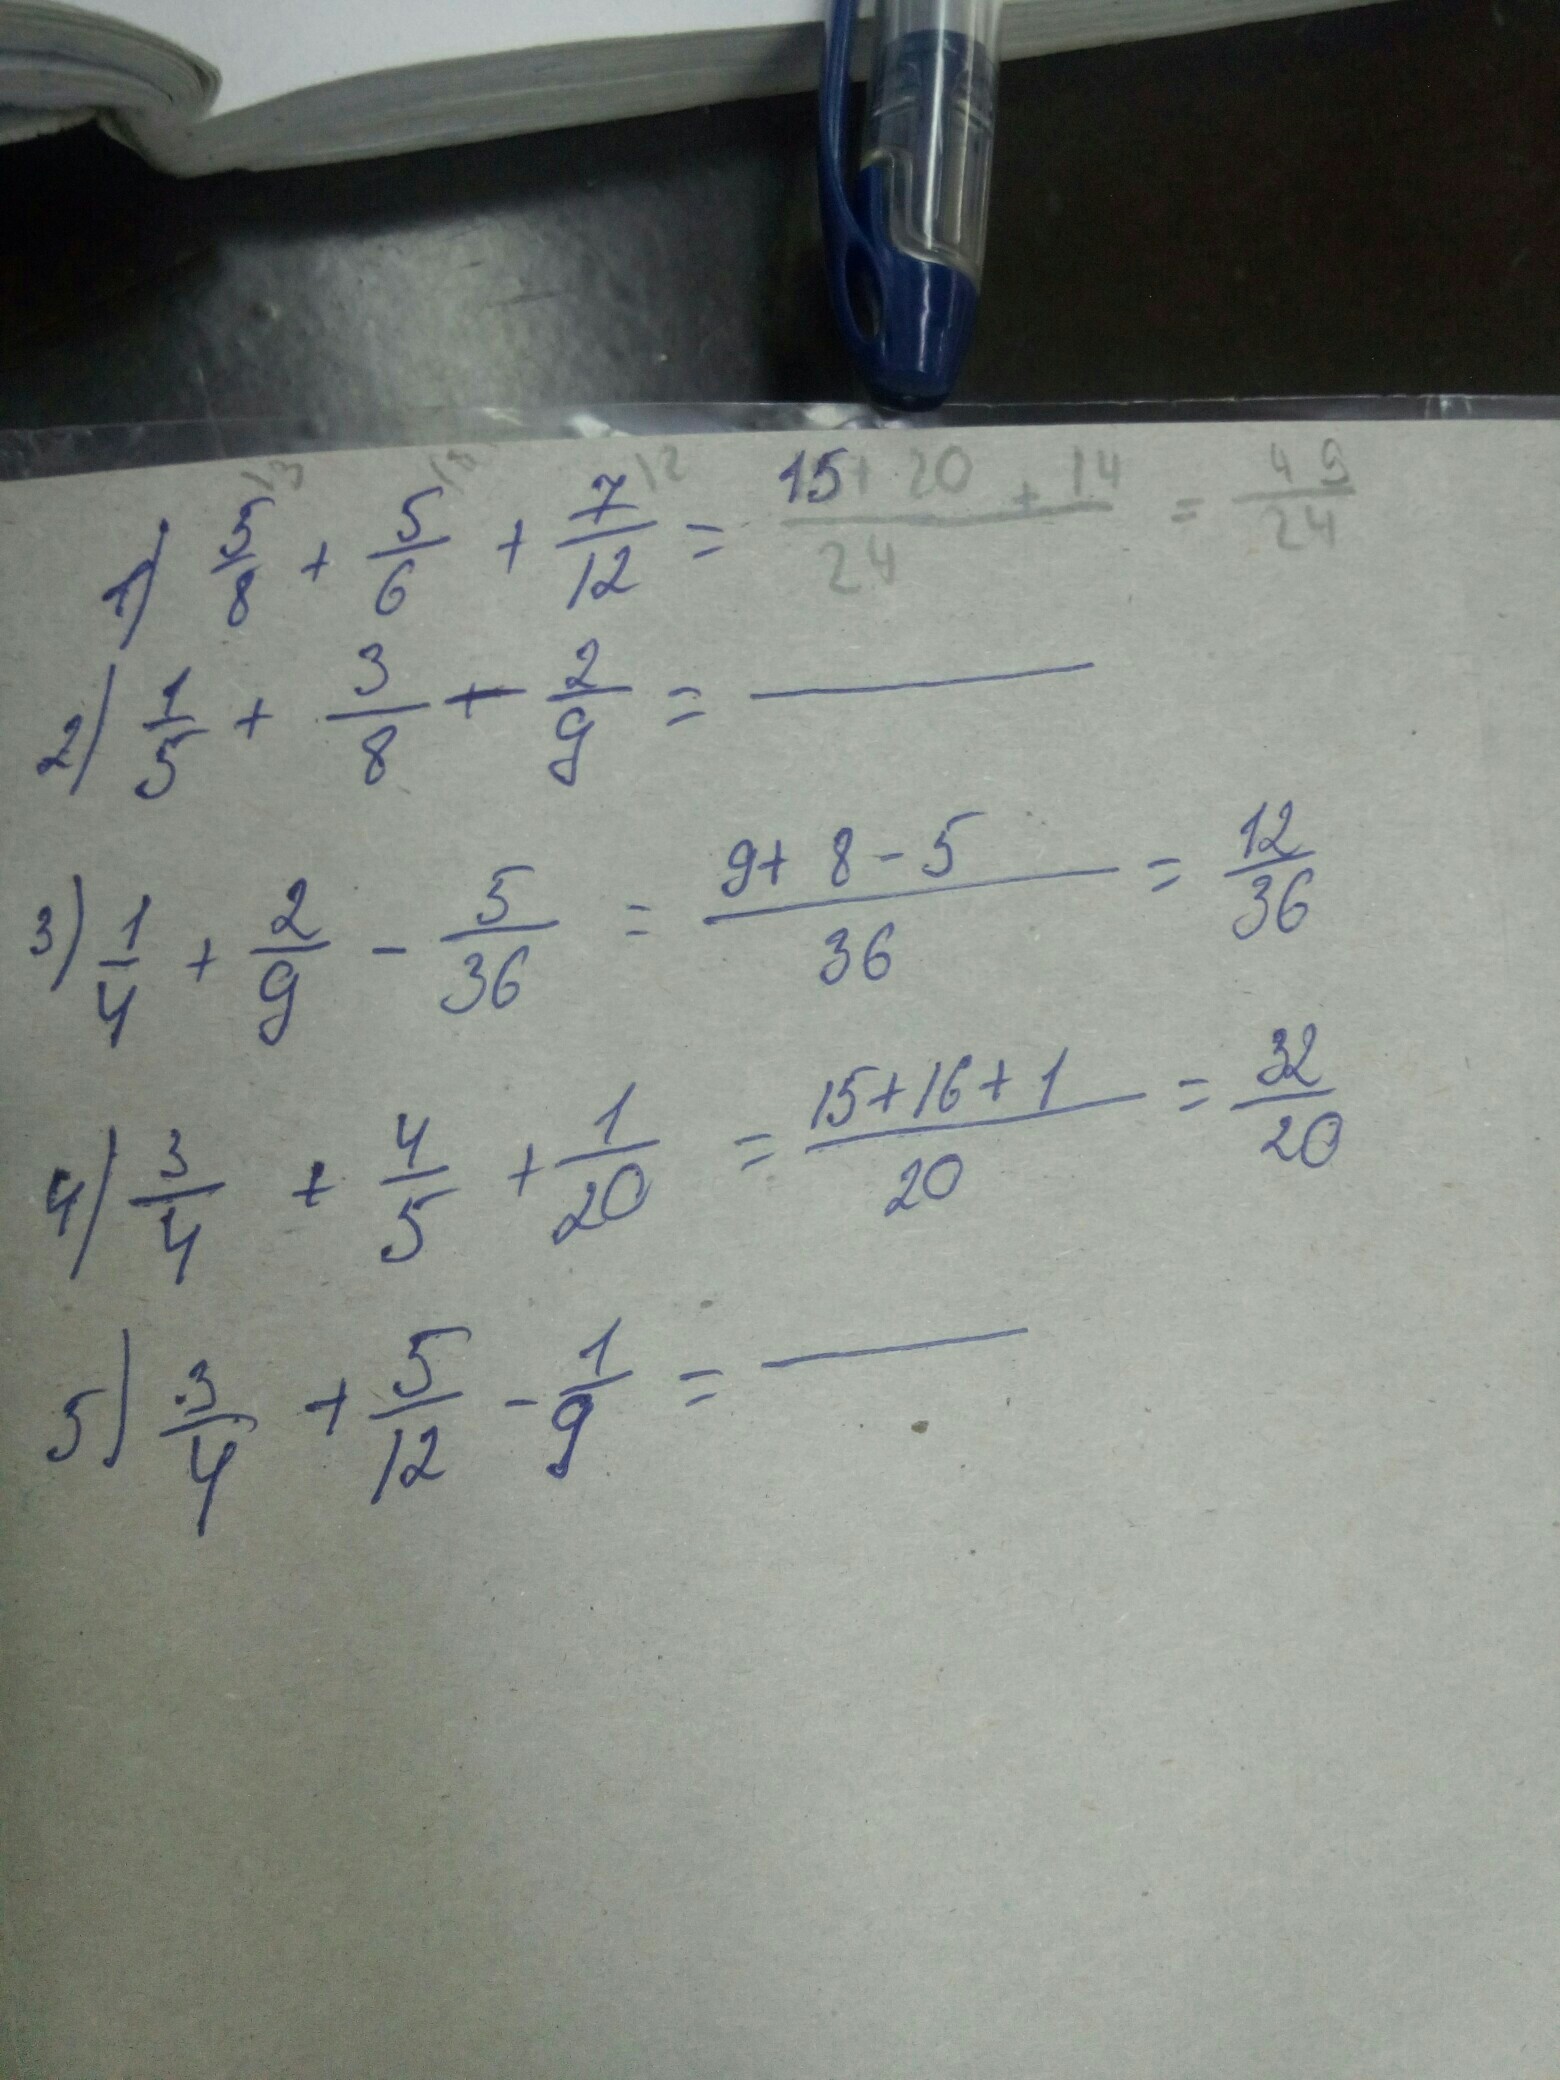 1) 5/8 + 5/6 + 7/12 = 15+ 20 + 14/24 = 49/24
2) 1/5 + 3/8 + 2/9 =
3) 1/4 + 2/9 - 5/36 = 9+ 8-5/36 = 12/36
4) 3/4 + 4/5 + 1/20 = 15+16+1/20 = 32/20
5) 3/4 + 5/12 - 1/9 =